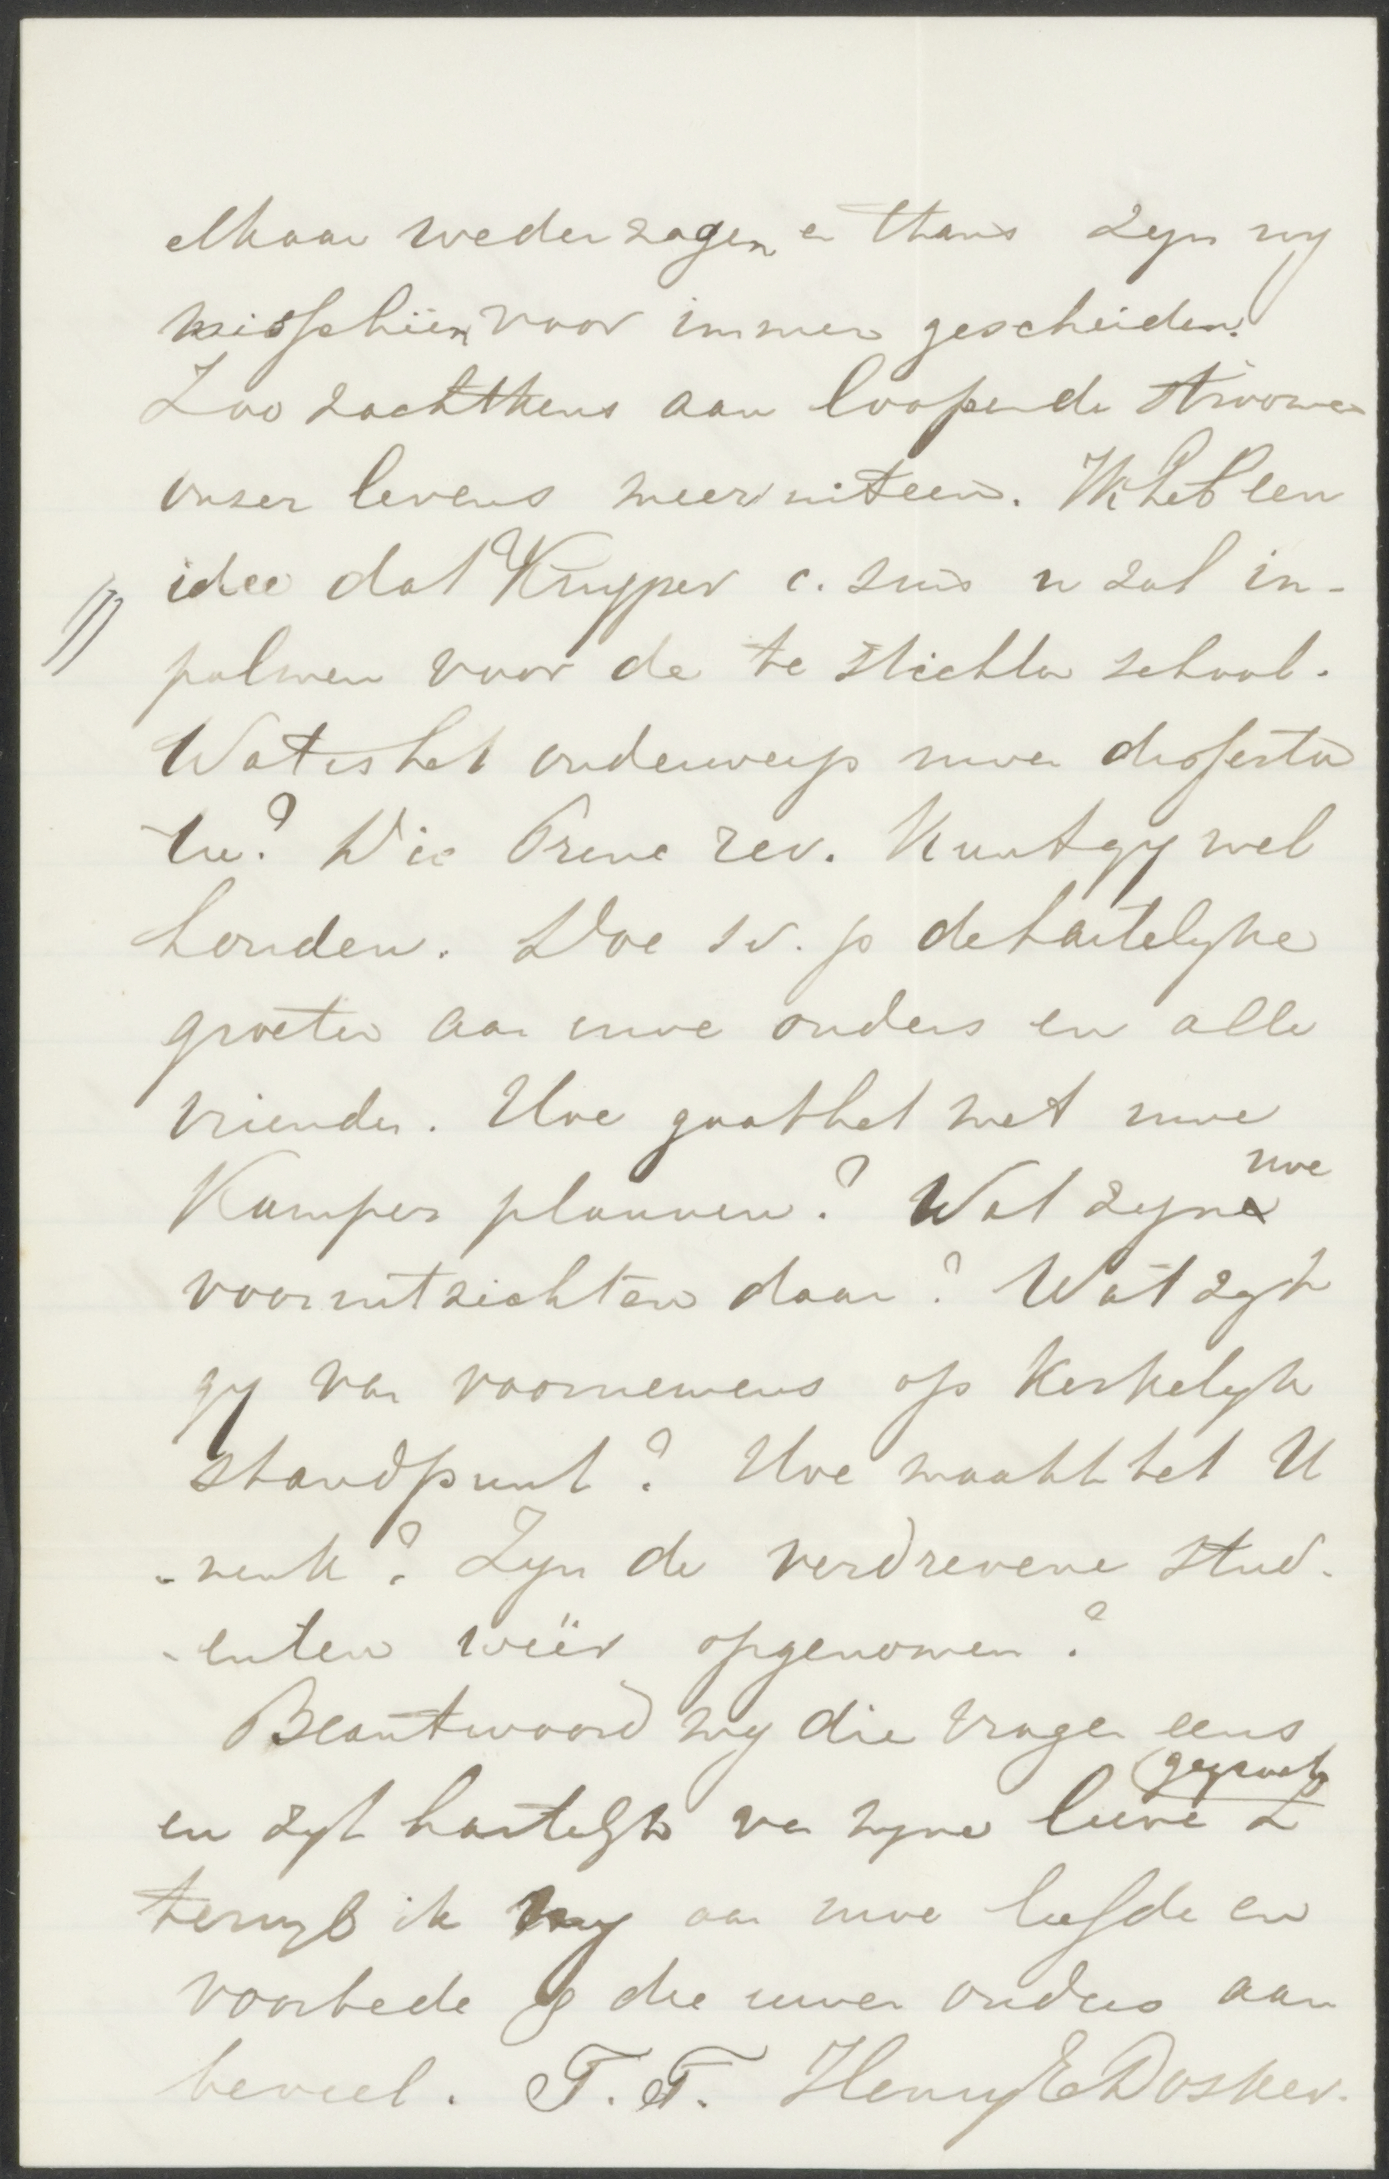 elkaar wederzagen en thans zyn wy
misschiën voor immer gescheiden.
Zoo zachtkens aan loopen de stroomen
onzer levens meer uiteen. Ik heb een
idee dat Kuyper c. suis u zal in-
palmen voor de te stichten school.
Wat is het onderwerp uwer disserta
tie? Die Prinse rev. Kunt gy wel
houden. Doe s.v.p de hartelyke
groeten aan uwe ouders en alle
vrienden. Hoe gaat het met uwe
Kamper plannen? Wat zyn uwe
vooruitzichten daar? Wat zyt
gy van voornemens op Kerkelyk
standpunt? Hoe maakt het U
-nink? Zyn de verdrevene stud-
-enten weër opgenomen?
Beantwoord my die vragen eens
en zyt hartelyk gegroet van myne lieve L
terwyl ik my aan uwe liefde en
voorbede & die uwer ouders aan
beveel. T. T. Henry E Dosker.